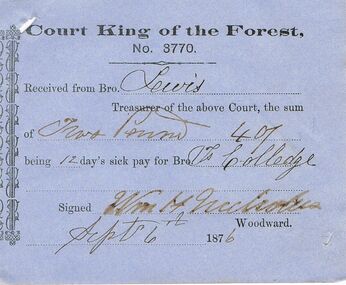 Court King of the Forest,
No. 3770.
Received from Bro. Lewis
Treasurer of the above Court, the sum
of Two Pound 4 0/
being 12 day's sick pay for Bro Colledge
Signed Wm H Nicholas
Woodward.
Sept 6th 1876